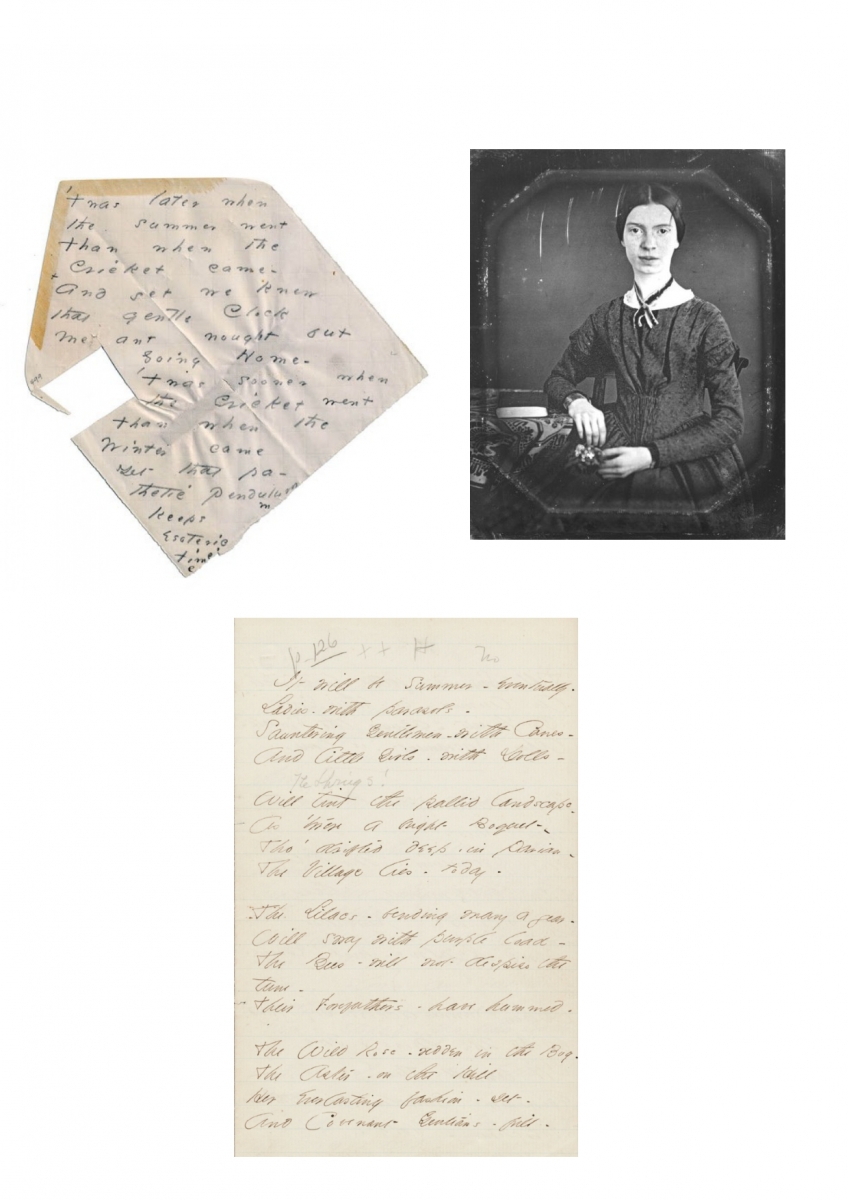 'twas later when
the summer went
than when the
Cricket came-
And yet we knew
that gentle Clock
meant nought but
Going Home-
'twas sooner when
the Cricket went
than when the
Winter came
Yet that pa-
thetic pendulum
keeps
Esoteric
time
p-126 ++ No
It will be Summer - eventually.
Ladies - with parasols -
Sauntering Gentlemen - with Canes -
And little Girls - with Dolls -
The Springs!
Will tint the pallid landscape -
As 'twere a bright Boquet -
Tho' drifted deep - in Parian -
The Village lies - today -
The Lilacs - bending many a year -
Will sway with purple load -
The Bees - will not despise the
tune -
Their Forefathers - have hummed -
The Wild Rose - redden in the Bog -
The Aster - on the Hill
Her Everlasting fashion - set -
And Covenant Gentians - frill -